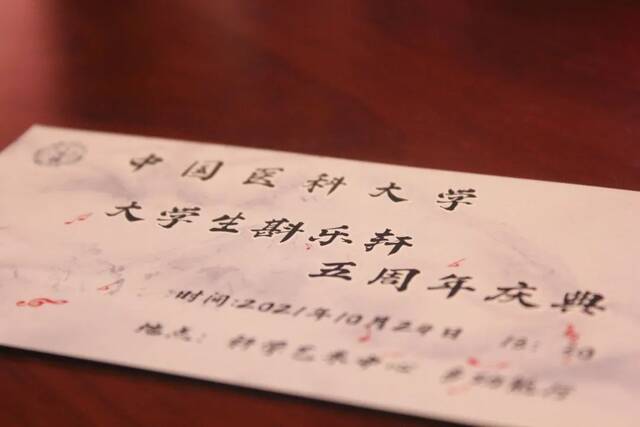 中国医科大学
大学生斟乐轩
五周年庆典
时间:2021年10月24日 18:
地点: 科学艺术中心